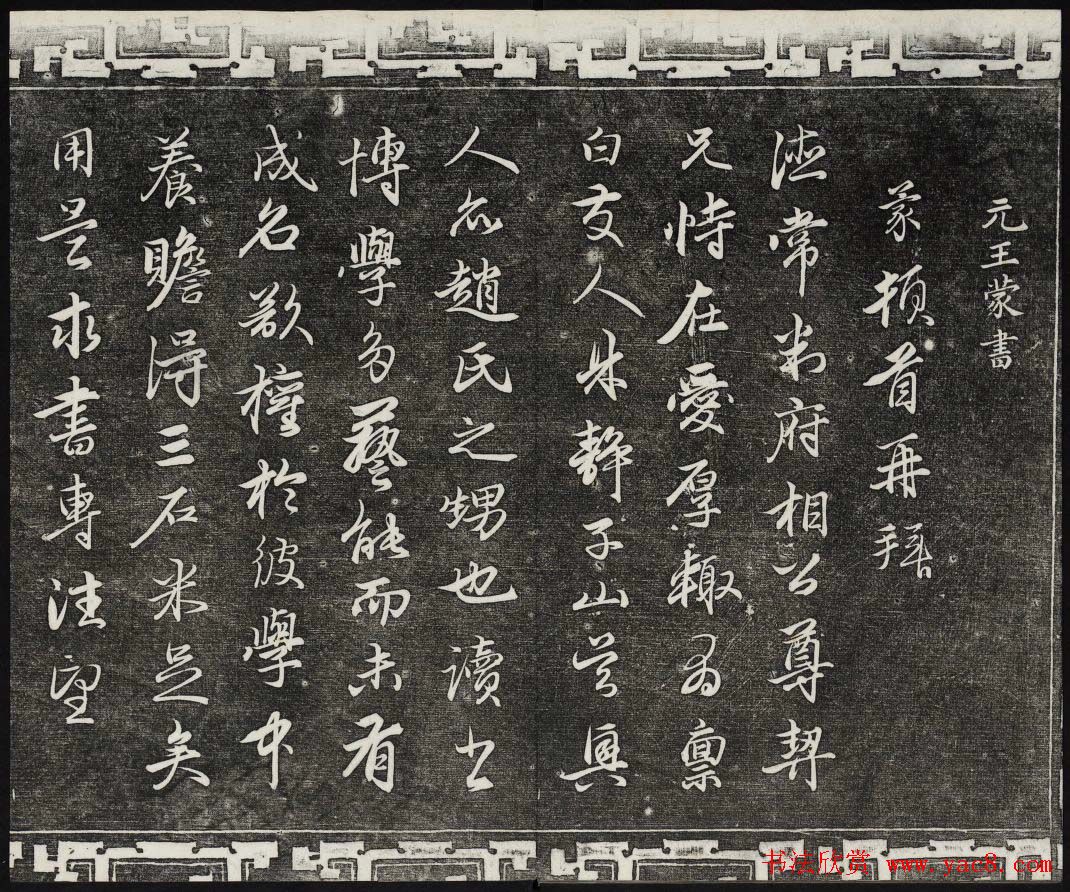 元王蒙書
蒙頓首再拜
德常判府相公尊契
兄恃在愛厚輒為禀
白友人朱靜子山吳興
人亦趙氏之甥也讀書
博學多藝能而未有
成名欲權於彼學中
養贍得三石米足矣
用是求書專往望
书法欣赏 www.yac8.com